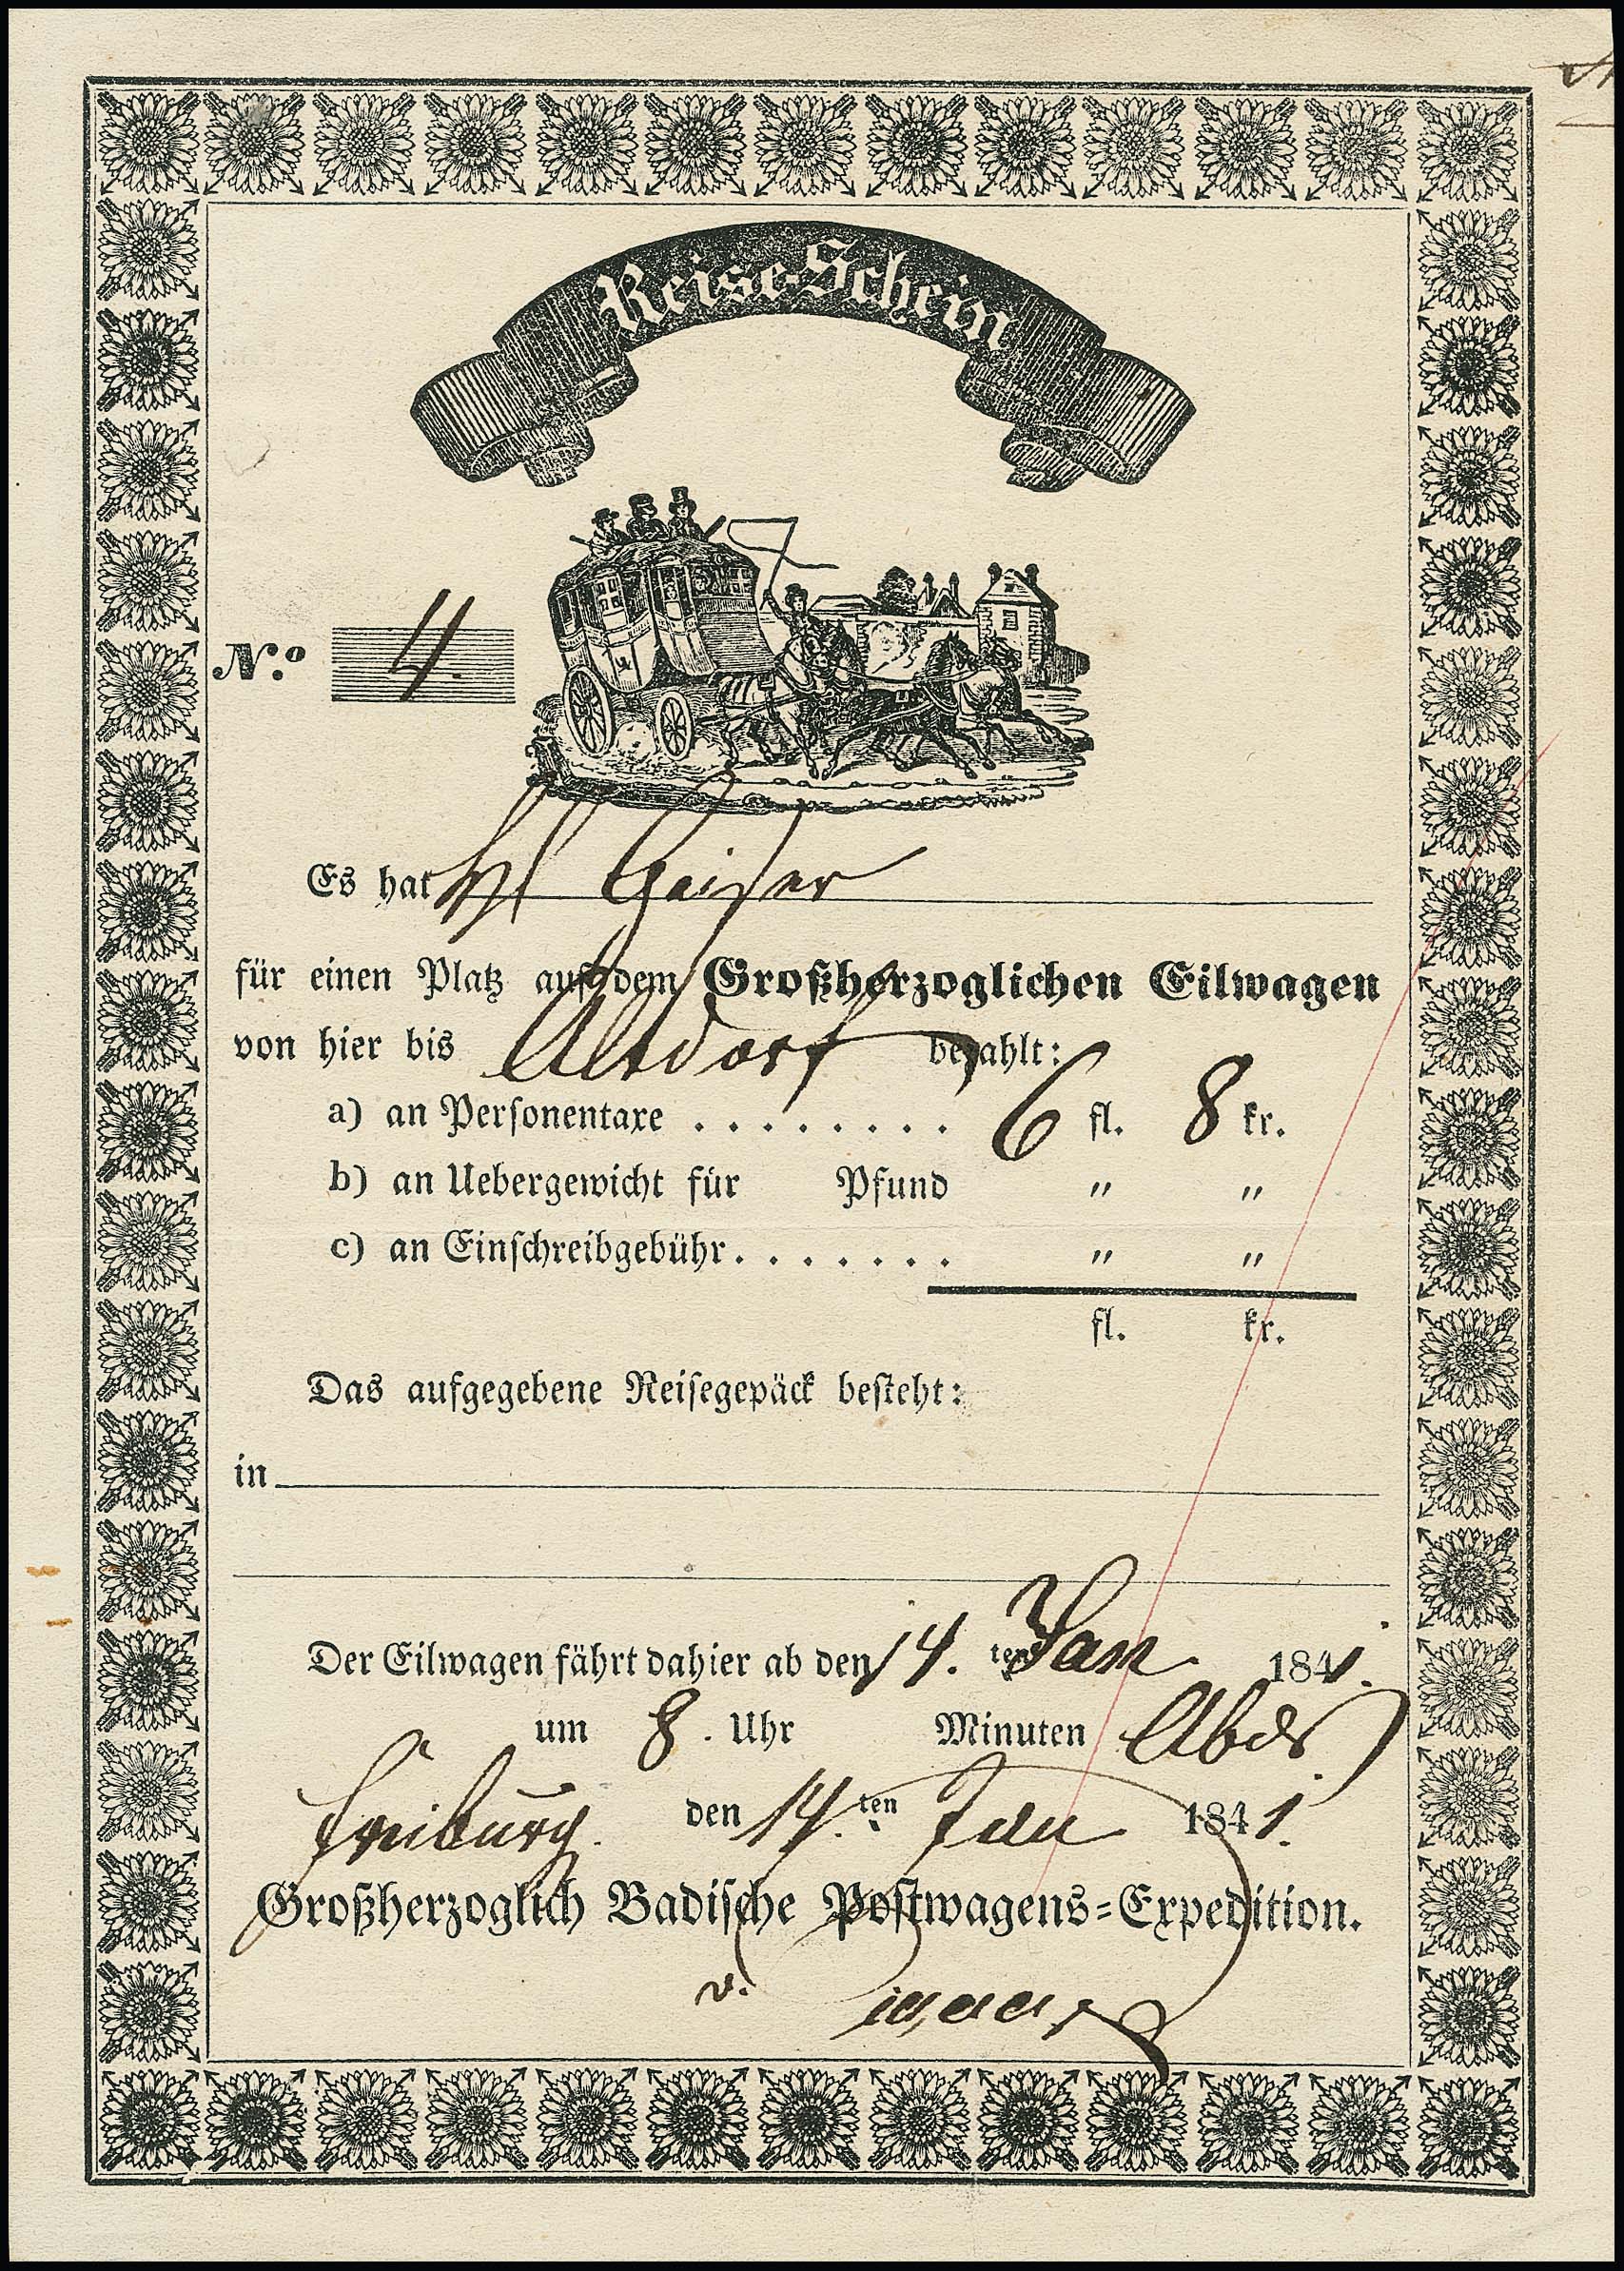 Reise-Schein
N.º 4.
Es hat H Gaiser
für einen Platz auf dem Großherzoglichen Eilwagen
von hier bis Altdorf bezahlt:
a) an Personentaxe ........ 6 fl. 8 kr.
b) an Uebergewicht für Pfund " "
c) an Einschreibgebühr. ...... " "
fl. kr.
Das aufgegebene Reisegepäck besteht:
in
Der Eilwagen fährt dahier ab den 14. ten Jan 1841.
um 8. Uhr Minuten Abds
Freiburg. den 14. ten Jan 1841.
Großherzoglich Badische Postwagens-Expedition.
v.